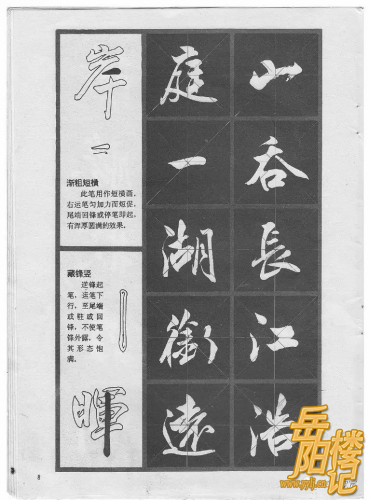 山吞長江浩
庭一湖銜遠
岸
渐粗短横
此笔用作短横画，
右运笔匀加力而短促，
尾端回锋或停笔即起，
有浑厚圆满的效果。
藏锋竖
逆锋起
笔，运笔下
行，至尾端
或驻或回
锋，不使笔
锋外露，令
其形态饱
满。
暉
8
岳阳楼记